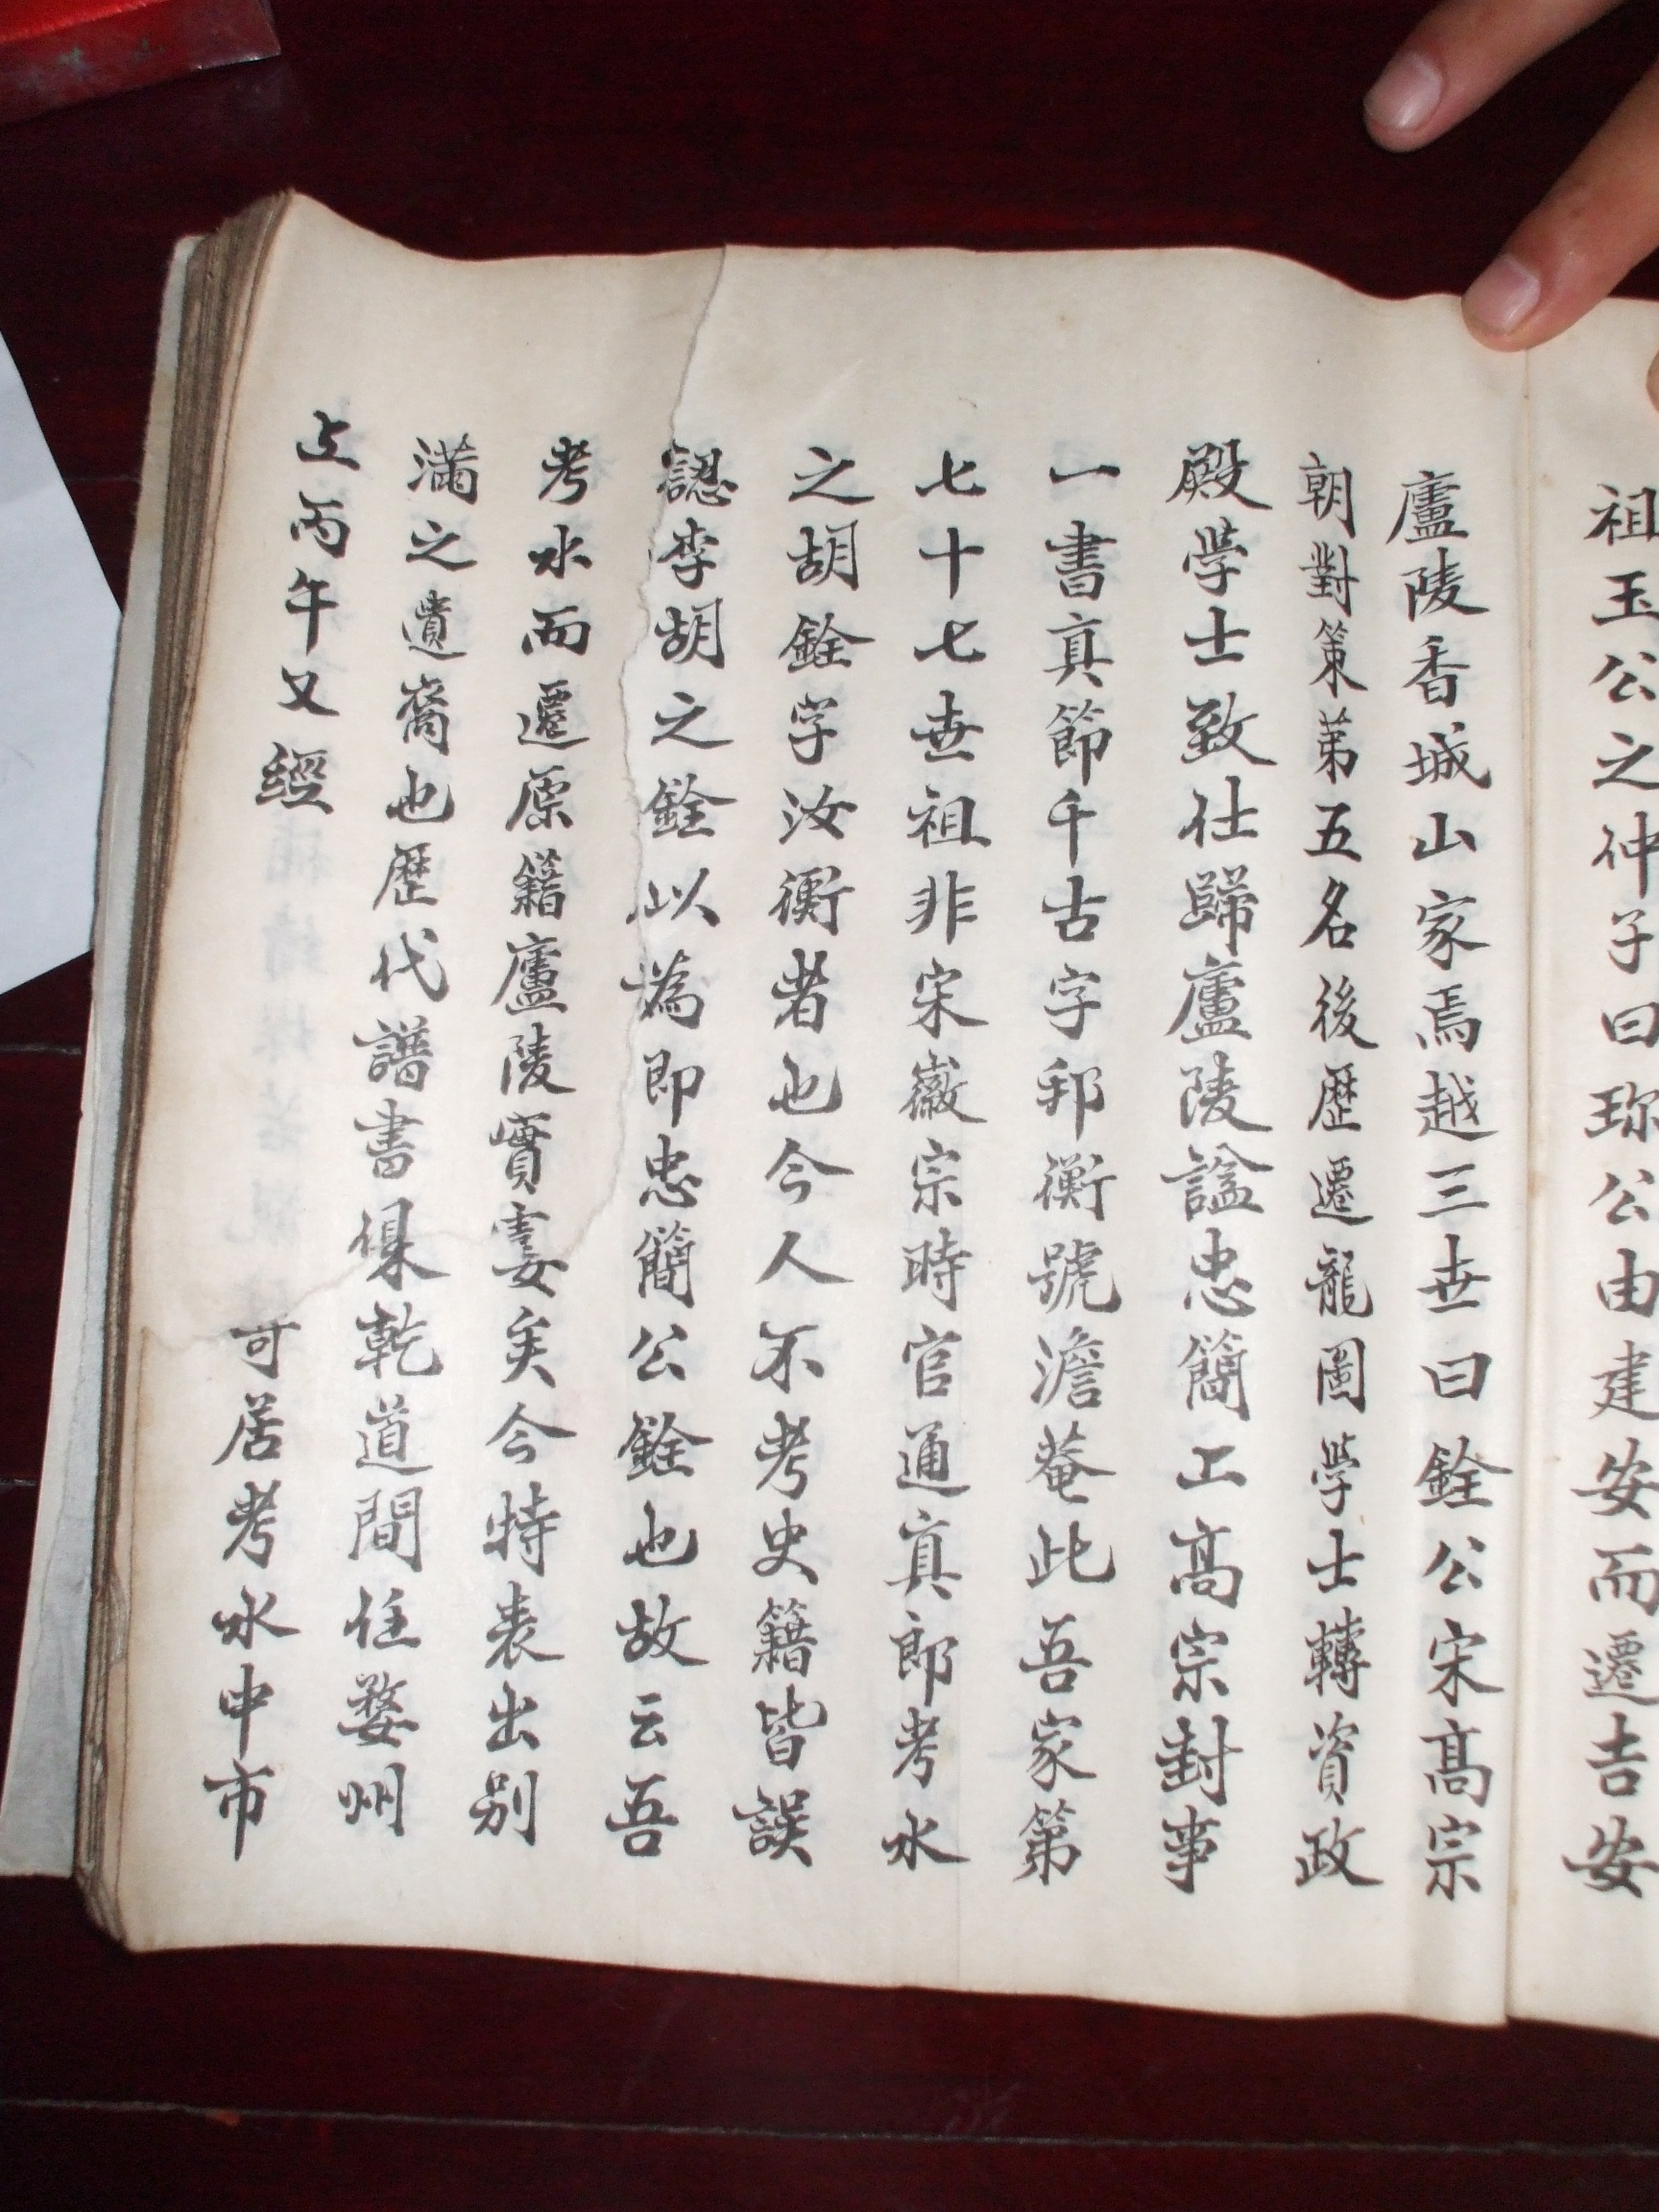 祖玉公之仲子曰珎公由建安而遷吉安
廬陵香城山家焉越三世曰銓公宋髙宗
朝對策苐五名後歷遷龍圖學士轉資政
殿學士致仕歸廬陵謚忠簡工髙宗封事
一書真節千古字邦衡號澹菴此吾家第
七十七世祖非宋徽宗時官通真郎考水
之胡銓字汝衡者也今人不考史籍皆誤
認李胡之銓以為即忠簡公銓也故云吾
考水而遷原籍廬陵實妄矣今特表出别
滿之遺裔也歷代譜書俱乾道間任婺州
上丙午又經
可居考水中市